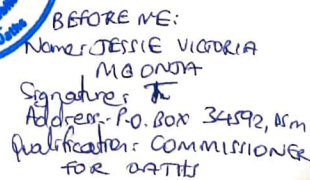 Oaths
BEFORE ME:
Name: JESSIE VICTORIA
MGONJA
Signature:
Address:- P.O. BOX 34592, DSM
Qualification: COMMISSIONER
FOR OATHS